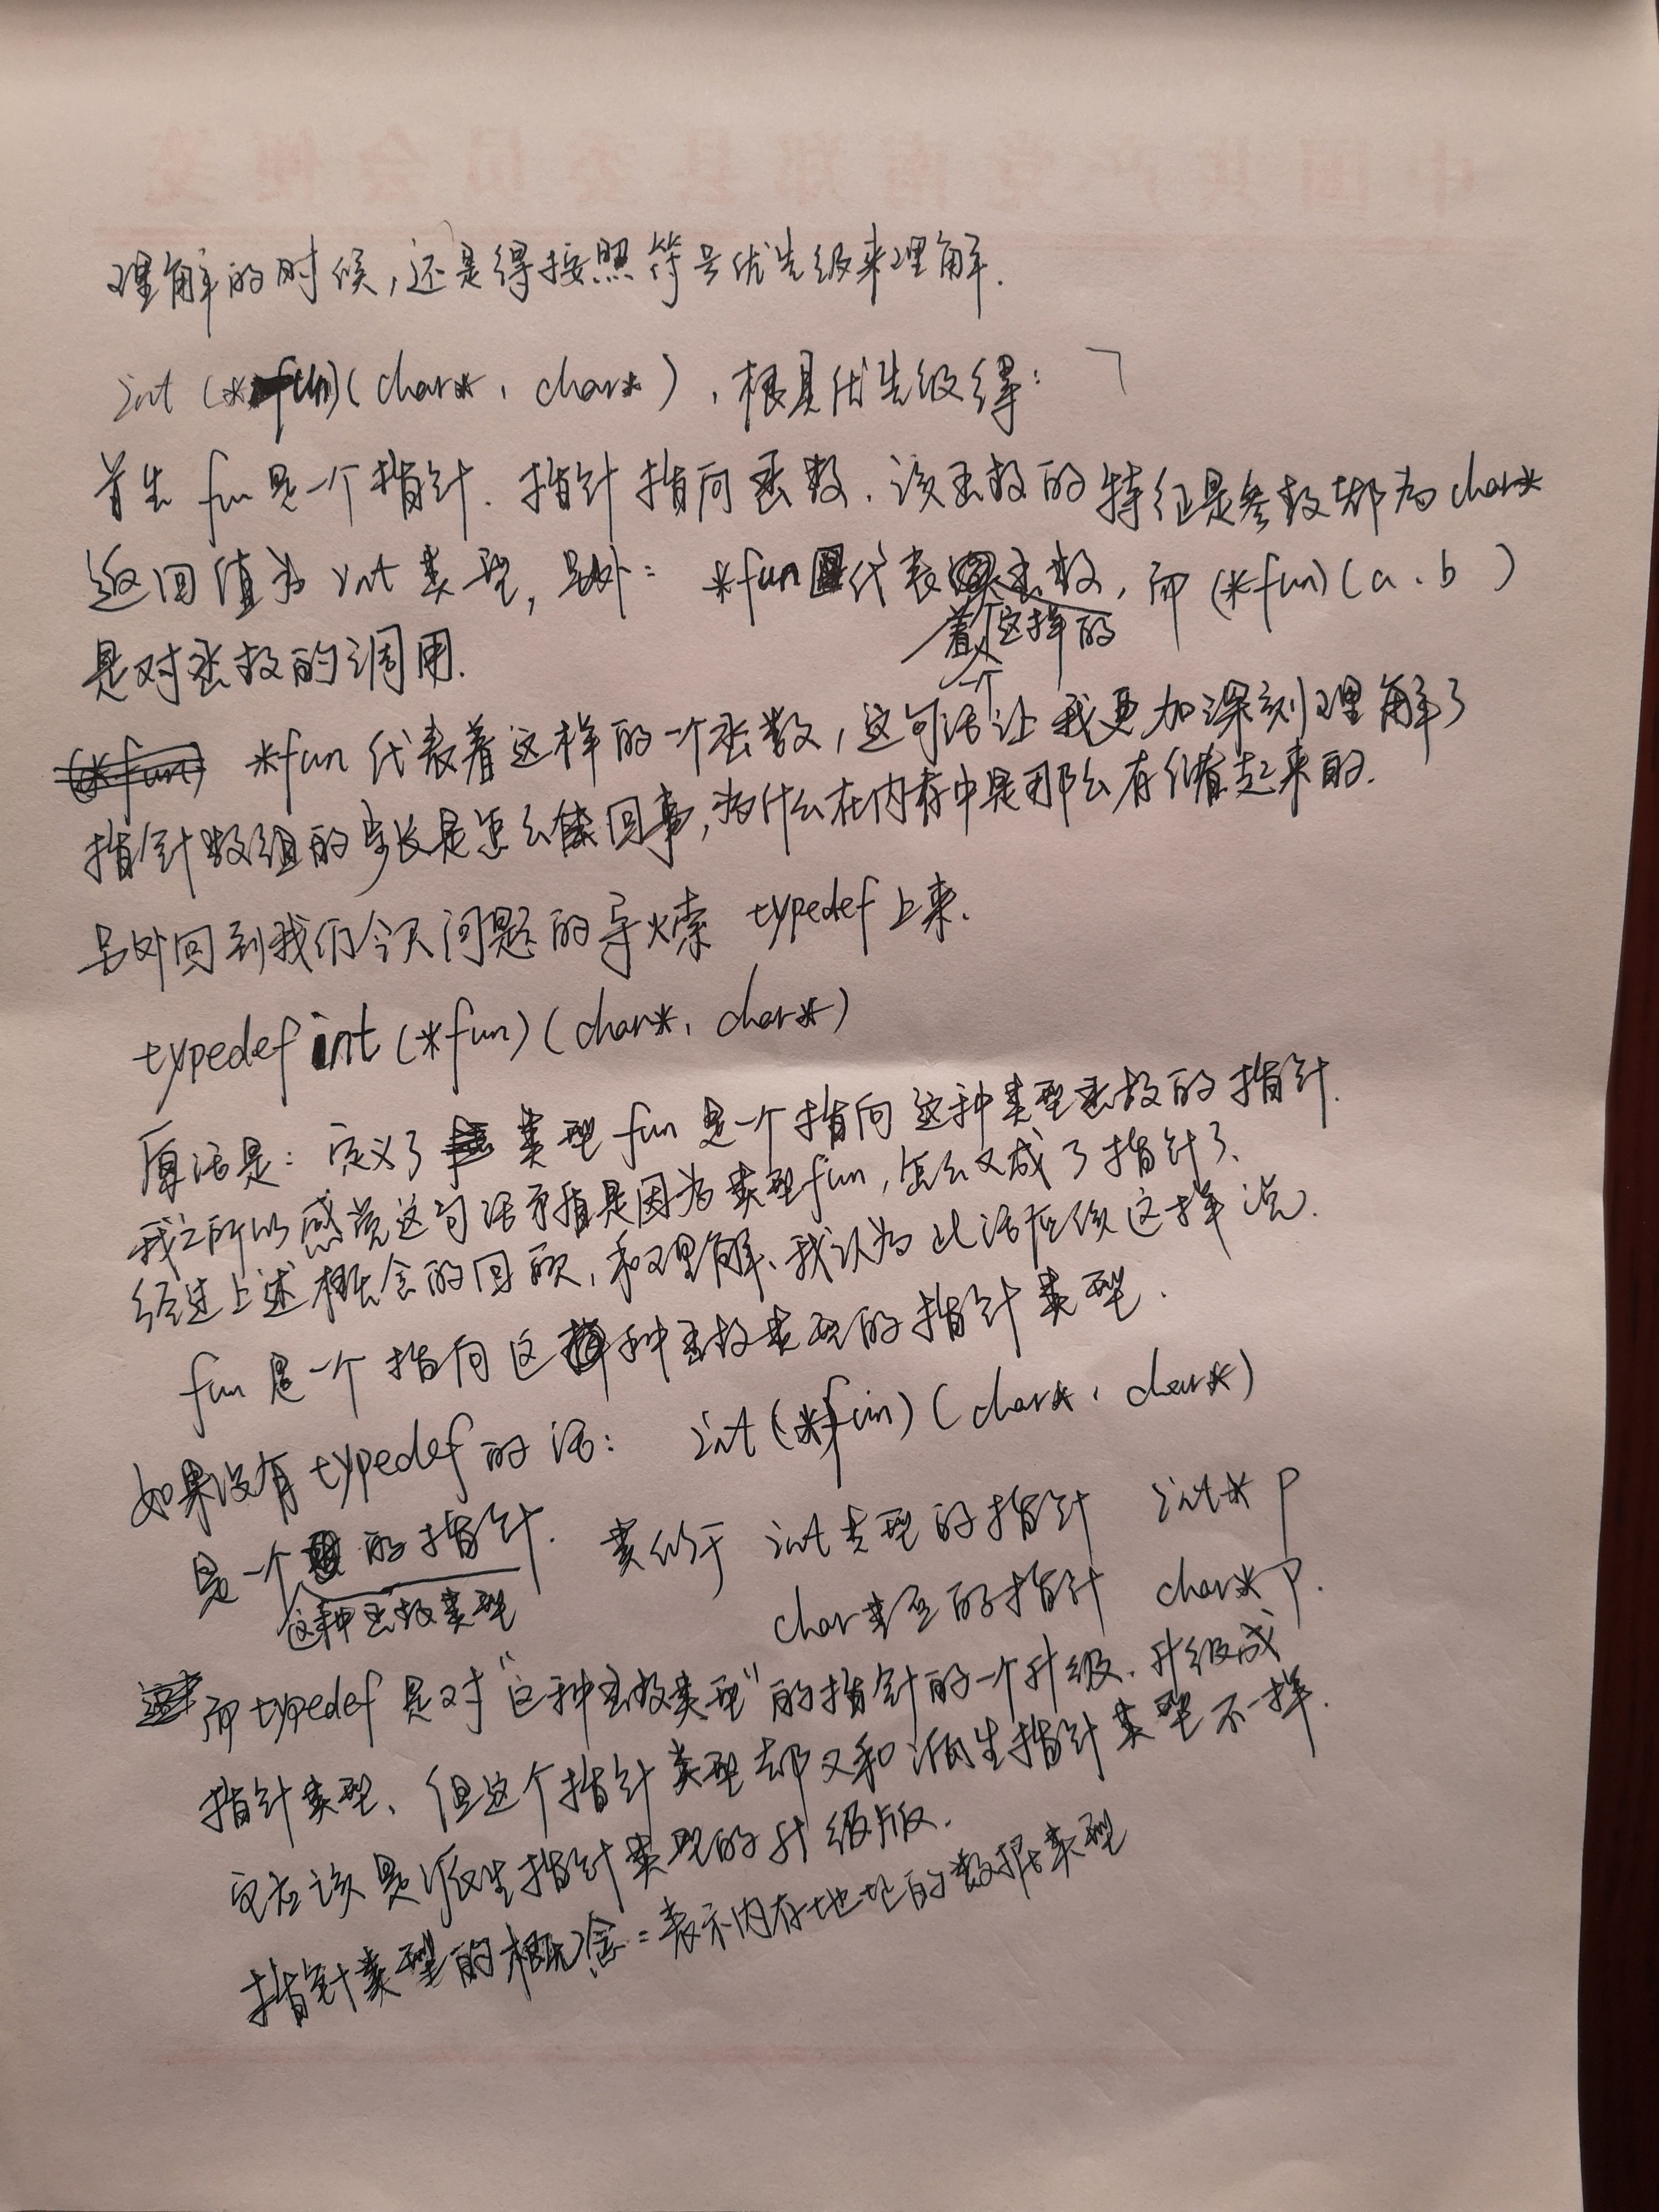 中国共产党南郑县委员会便笺
理解的时候,还是得按照符号优先级来理解.
int (*fun)(char*, char*),根具优先级得:
首先 fun是一个指针.指针指向函数.该函数的特征是参数都为char*
返回值为int类型,另外: *fun代表着一个这样的函数,而(*fun)(a、b)
是对函数的调用.
*fun代表着这样的一个函数,这句话让我更加深刻理解了
指针数组的步长是怎么回事,为什么在内存中是那么存储起来的.
另外回到我们今天问题的导火索 typedef上来.
typedef int (*fun)(char*, char*)
原话是:定义了类型fun是一个指向这种类型函数的指针.
我之所以感觉这句话矛盾是因为类型fun,怎么又成了指针了、
经过上述概念的回顾,和理解、我认为此话应该这样说.
fun是一个指向这种函数类型的指针类型.
如果没有typedef的话: int(*fun)(char*, char*)
是一个这种函数类型的指针. 类似于 int类型的指针 int* p
char类型的指针 char* p.
而typedef是对“这种函数类型”的指针的一个升级.升级成
指针类型、但这个指针类型却又和派生指针类型不一样.
它应该是派生指针类型的升级版.
指针类型的概念:表示内存地址的数据类型